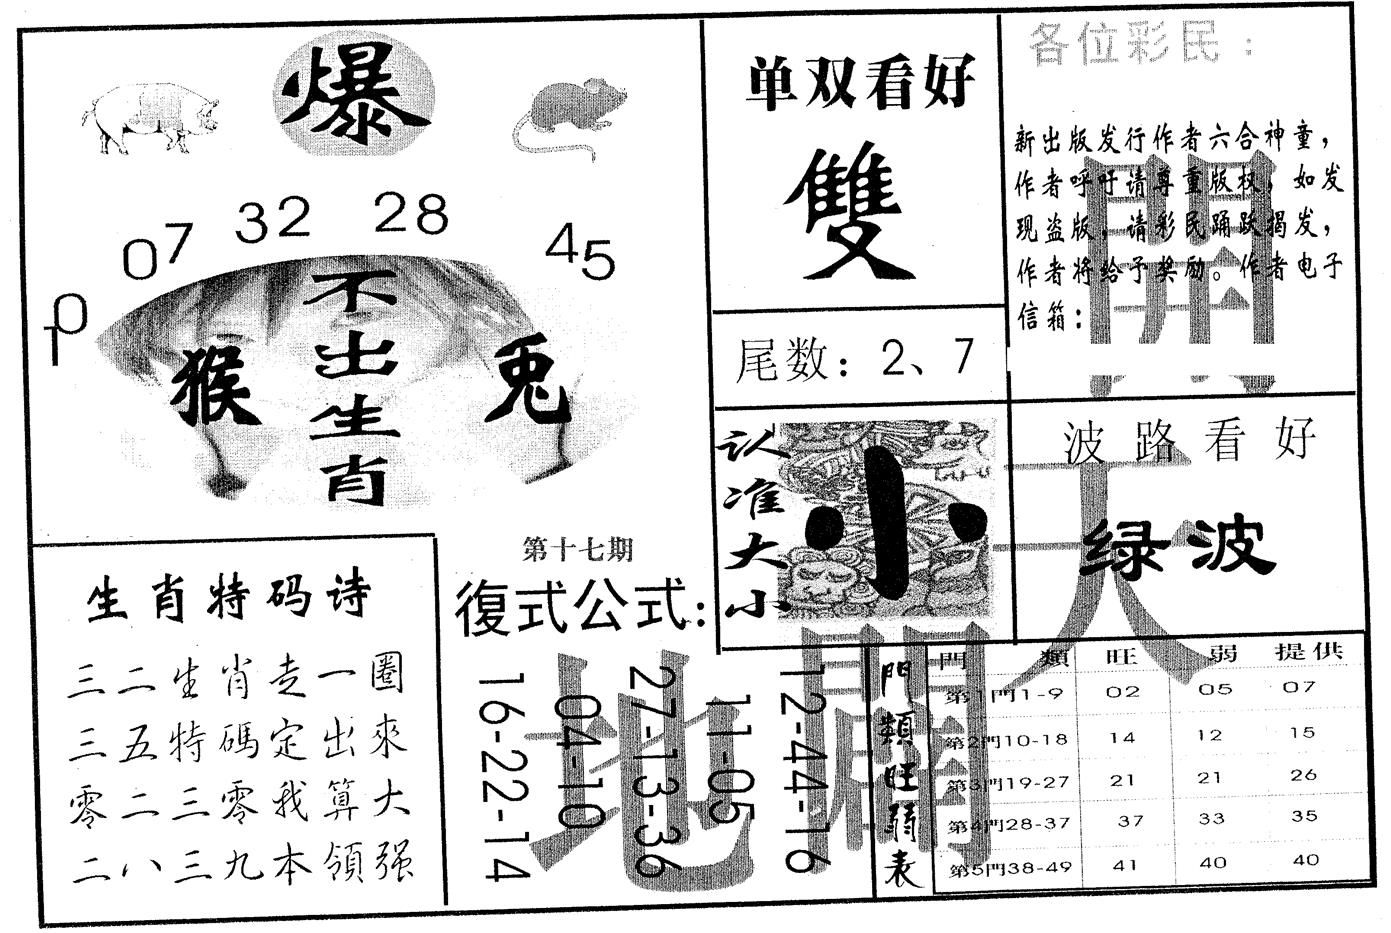 爆
10 07 32 28 45
不出生肖
猴
兔
单双看好
雙
尾数：2、7
各位彩民：
新出版发行作者六合神童，
作者呼吁请尊重版权，如发
现盗版，请彩民踊跃揭发，
作者将给予奖励。作者电子
信箱：
認准大小
小
波路看好
绿波
開
天
闢
地
生肖特码诗
三二生肖走一圈
三五特碼定出來
零二三零我算大
二八三九本領强
第十七期
復式公式：
16-22-14
04-10
27-13-36
11-05
12-44-16
門類旺弱表
門類 旺 弱 提供
第1門1-9 02 05 07
第2門10-18 14 12 15
第3門19-27 21 21 26
第4門28-37 37 33 35
第5門38-49 41 40 40